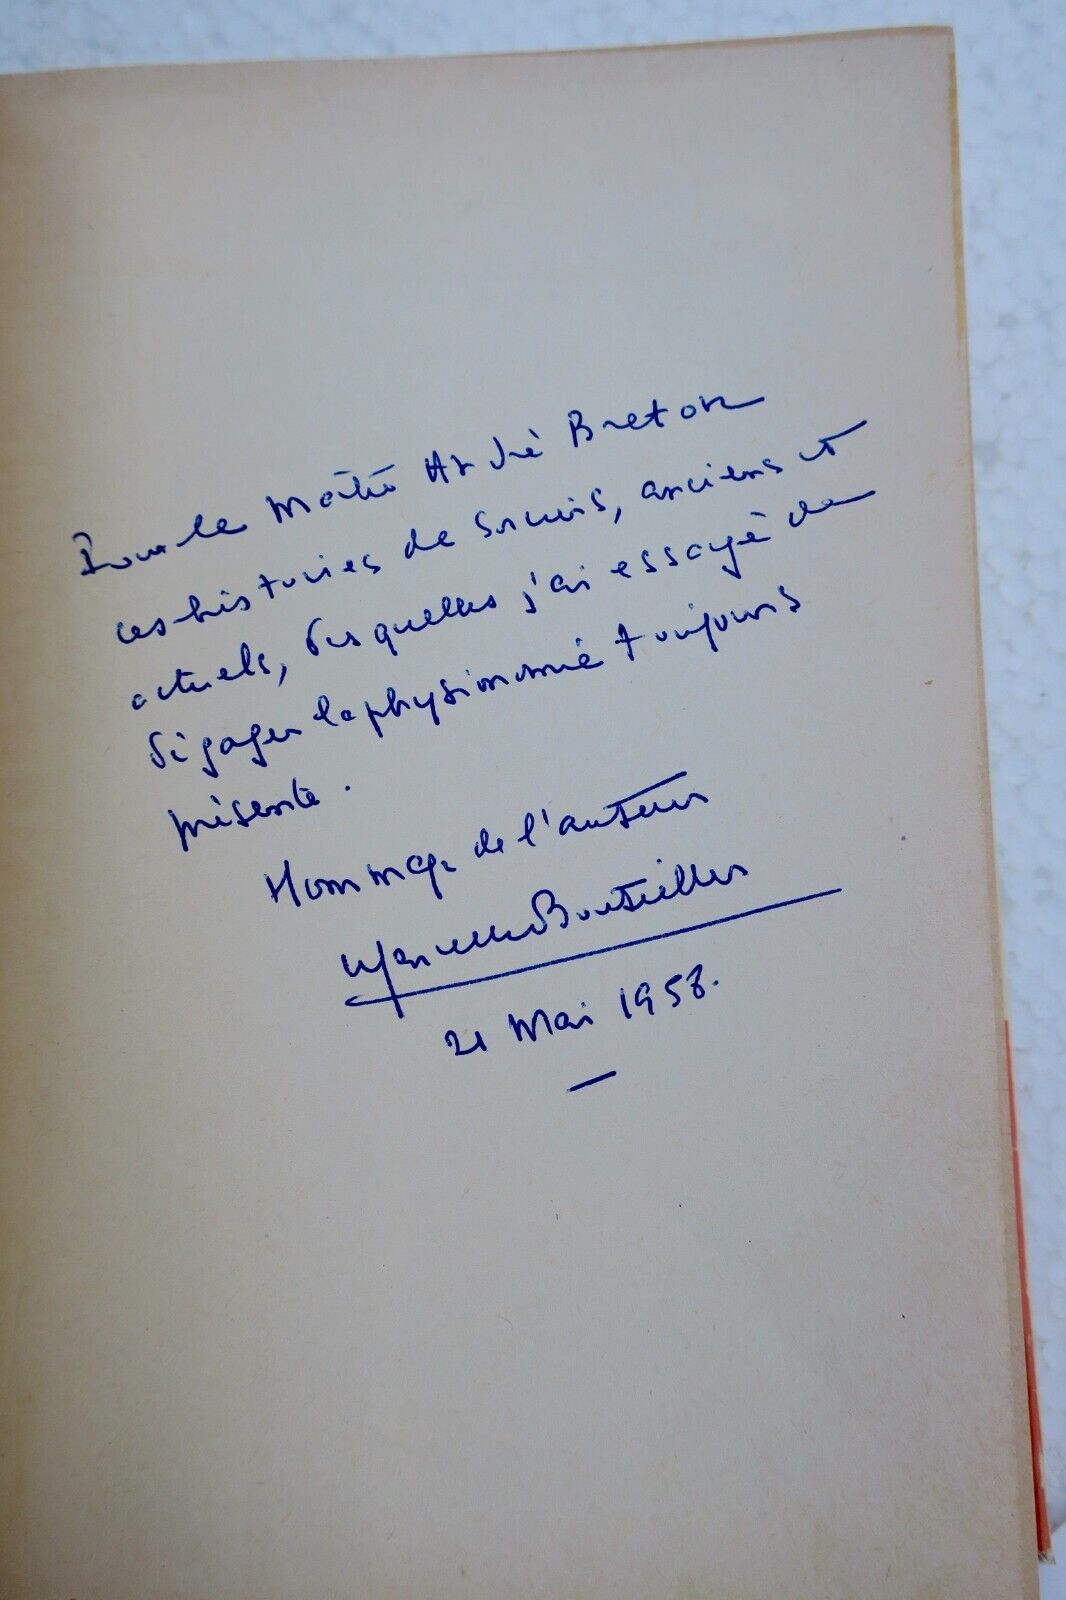 Pour le Maître André Breton
ces histoires de sorciers, anciens et
actuels, desquelles j'ai essayé de
dégager la physionomie toujours
présente.
Hommage de l'auteur
Marcelle Bouteiller
21 Mai 1958.